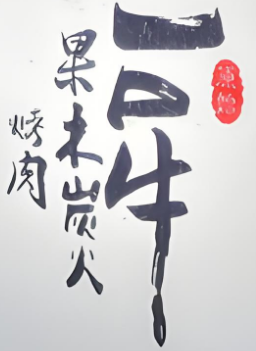 一口牛
果木炭火
烤肉